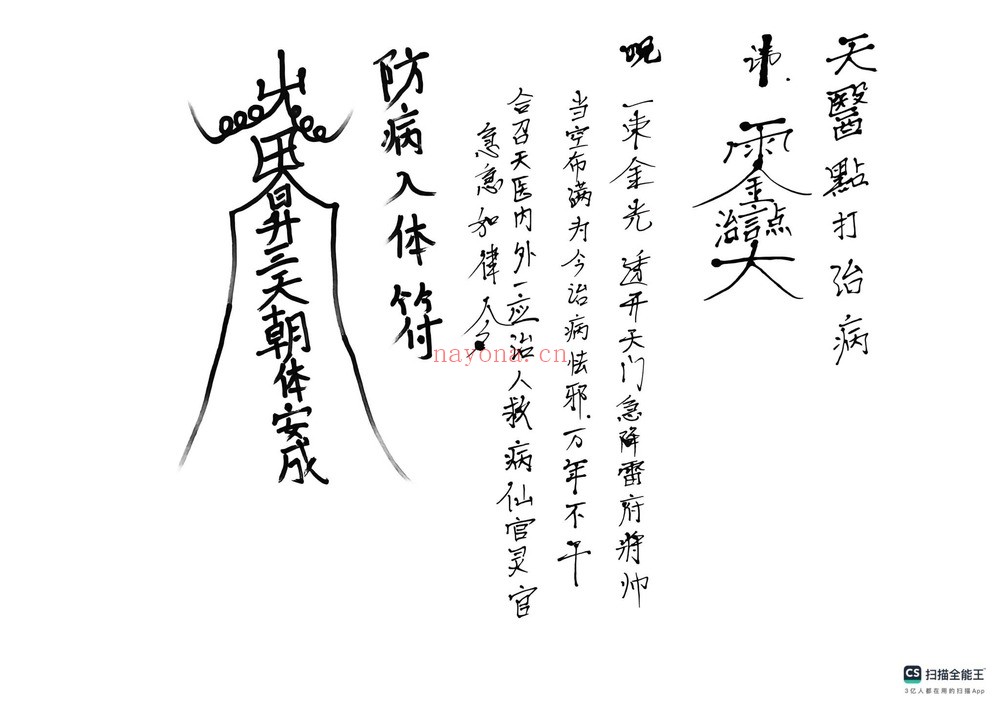 天醫點打治病
讳.
雨金
治言点
大
呪
一束金光透开天门急降雷府將帅
当空布满为今治病怯邪.万年不午
合召天医内外一应治人救病仙官灵官
急急如律令
防病入体符
昇三天朝体安成
nayona.cn
CS 扫描全能王
3亿人都在用的扫描App